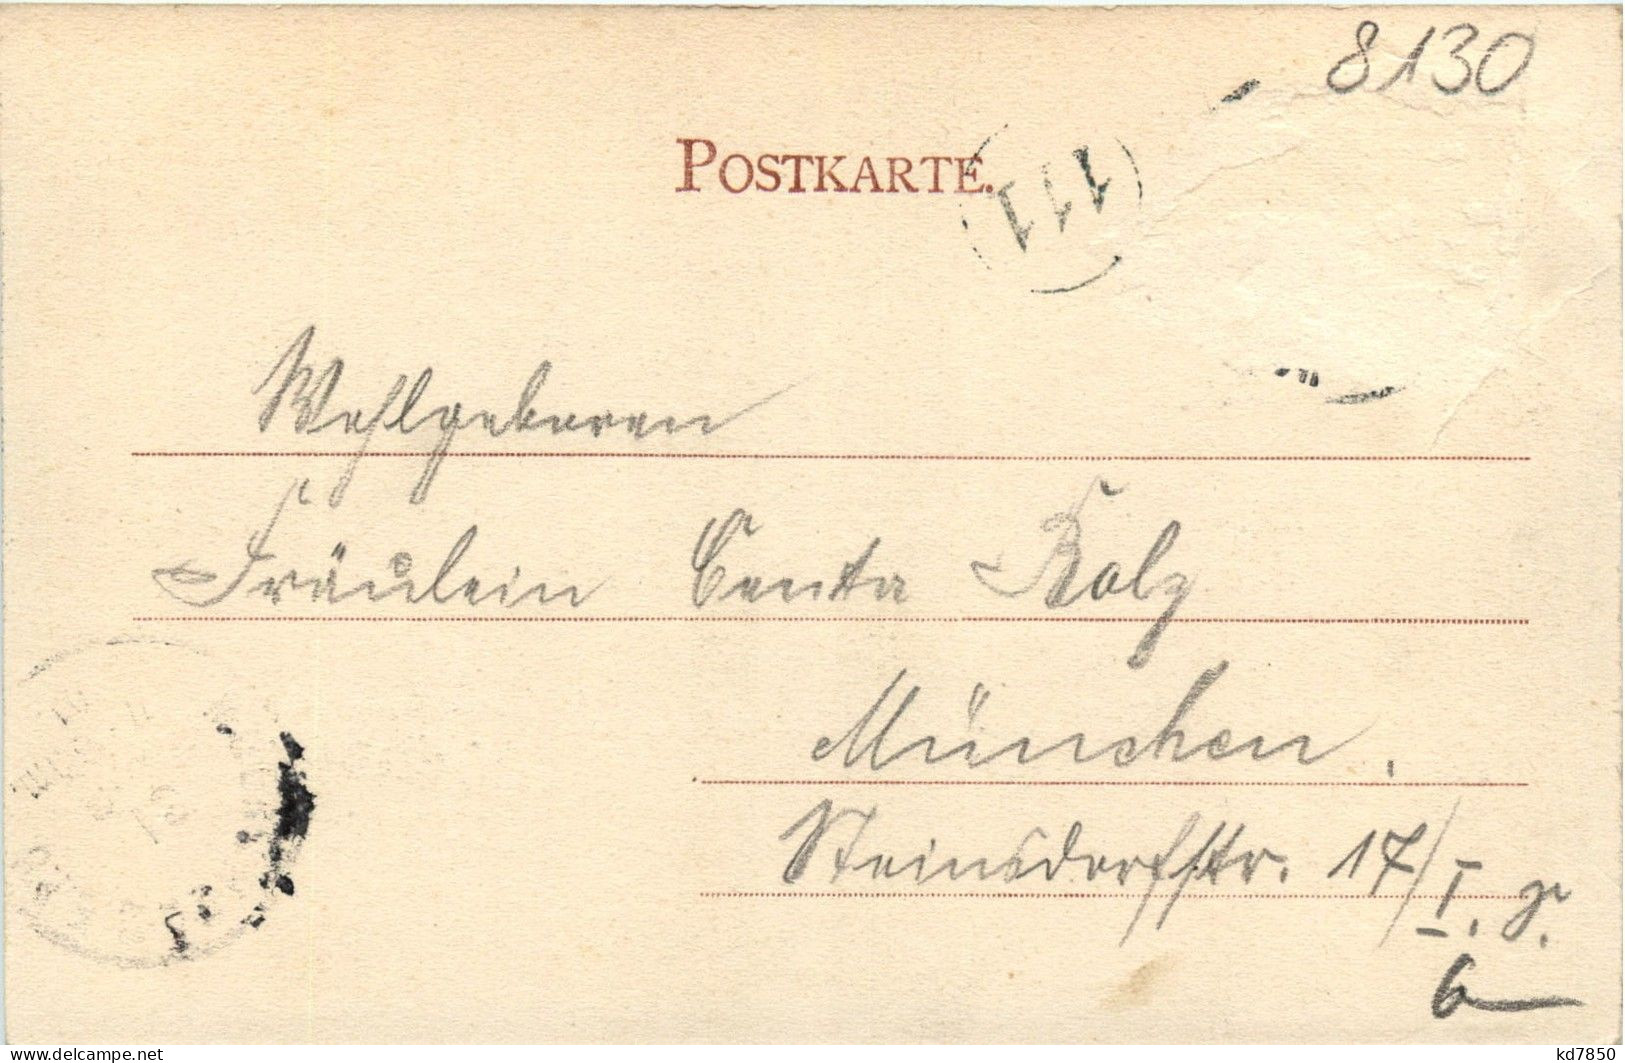 8130
POSTKARTE.
111
Wohlgeboren
Fräulein Centa Kolz
München.
Steinsdorfstr. 17/I. r.
6
delcampe.net
kd7850